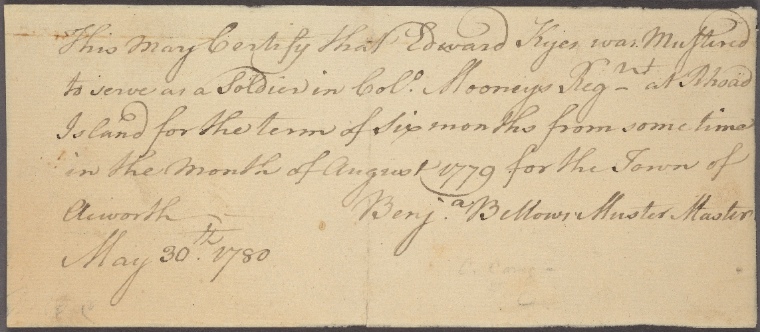 This may Certify that Edward Kyes was Mustered
to serve as a Soldier in Colo. Mooneys Regnt at Rhoad
Island for the term of six months from some time
in the Month of August 1779 for the Town of
Acworth
Benja. Bellows Muster Master
May 30th. 1780